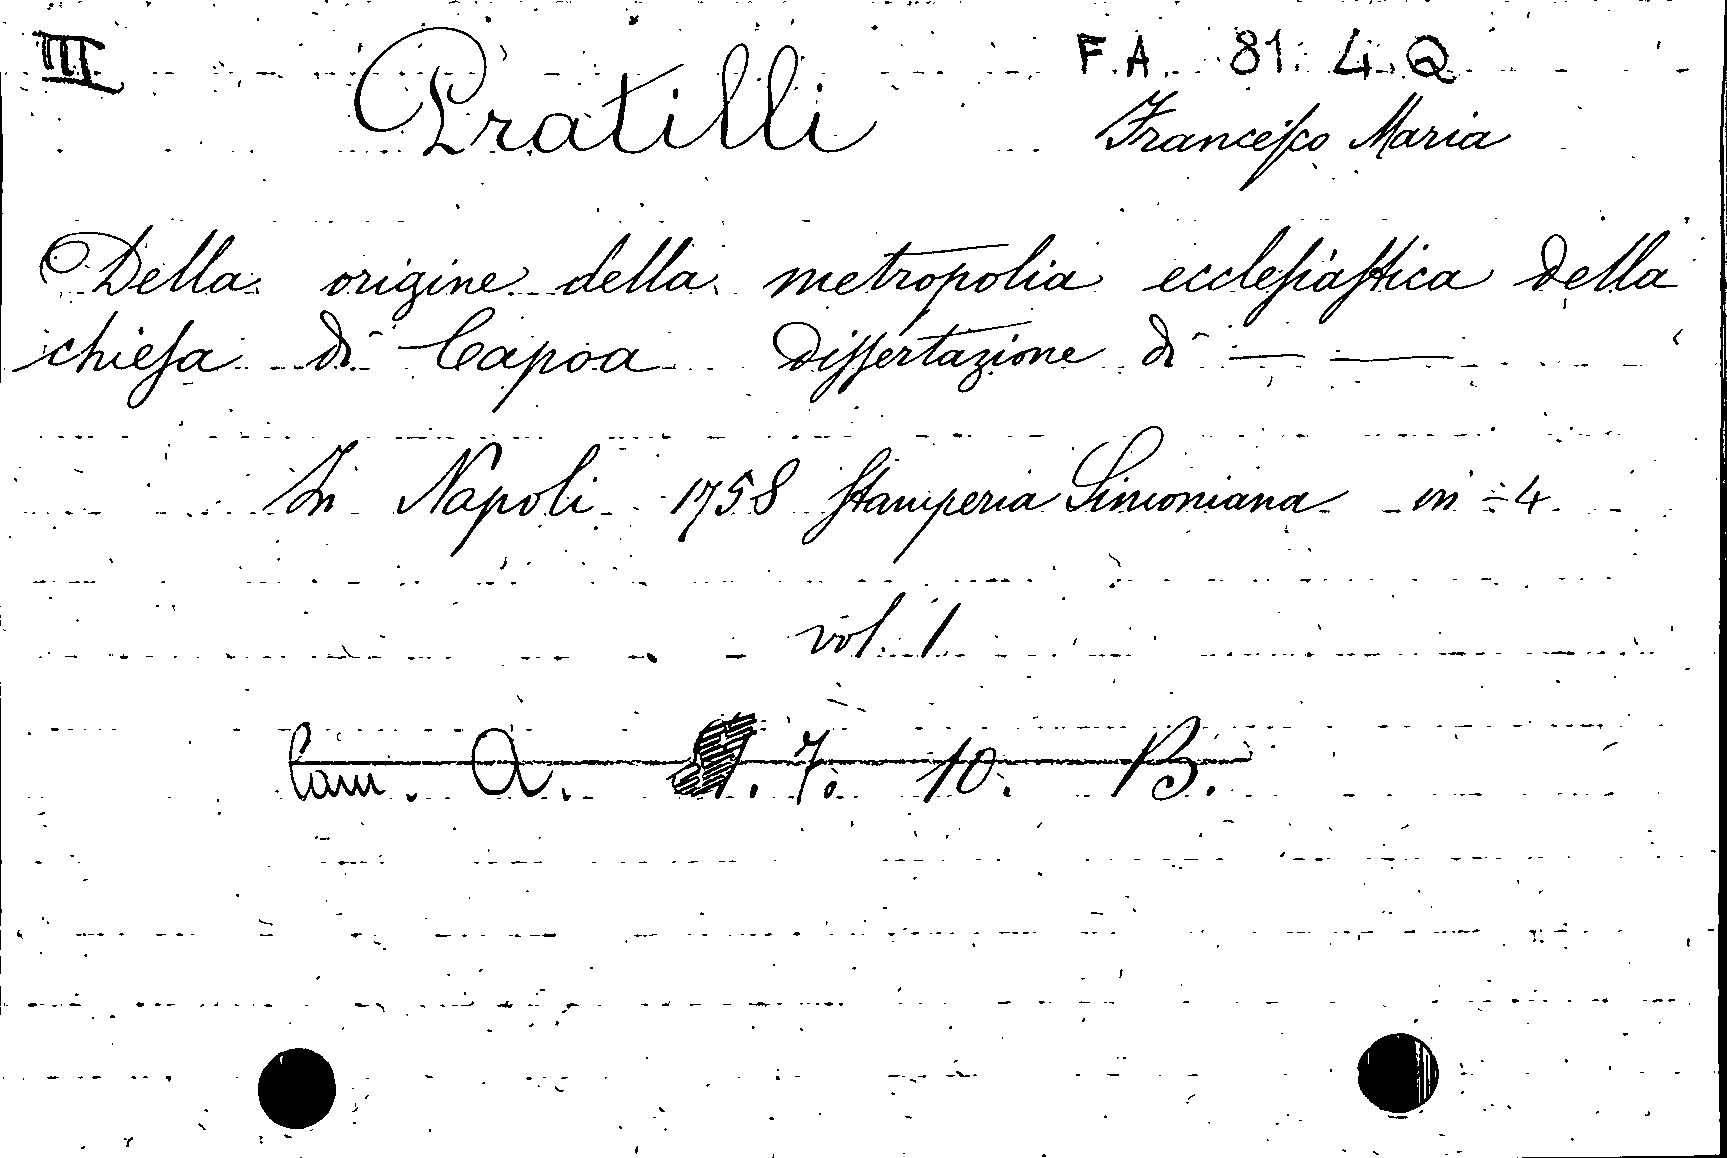 III
F.A. 81. 4. Q
Pratilli Francesco Maria
Della origine della metropolia ecclesiastica della
chiesa di Capoa dissertazione di — —
In Napoli 1758 stamperia Simoniana in-4
vol. 1
Cam. A. 7. 10. B.